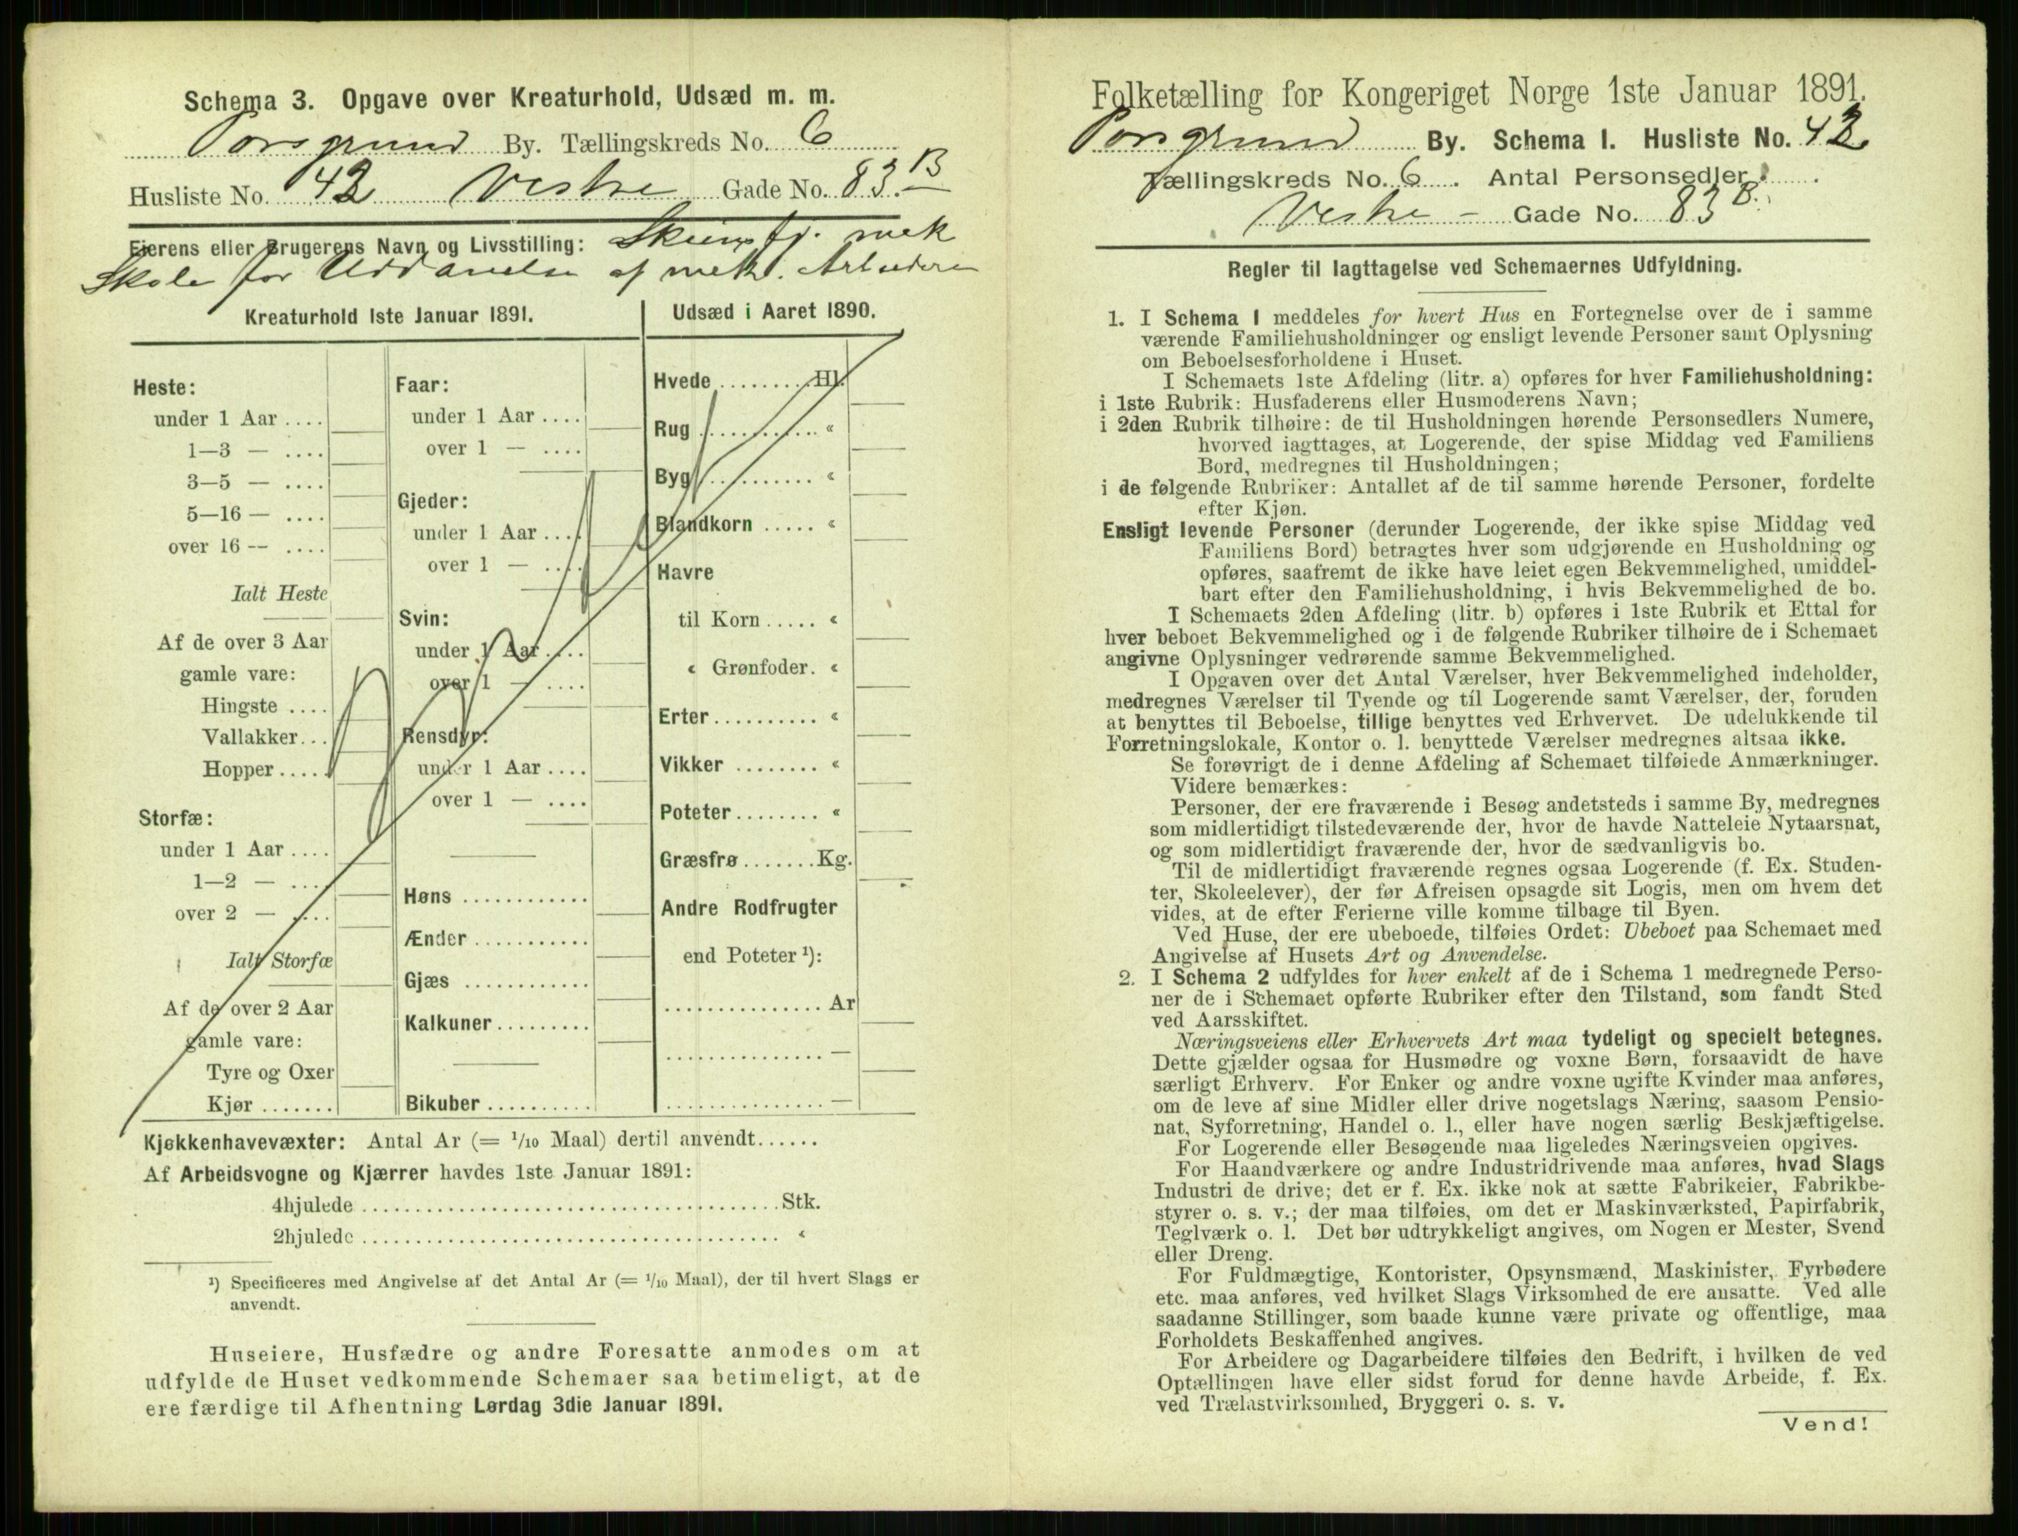 Schema 3. Opgave over Kreaturhold, Udsæd m. m.
Porsgrund By. Tællingskreds No. 6
Husliste No. 42 Vestre Gade No. 83 B
Eierens eller Brugerens Navn og Livsstilling: Skiensfj. mek
Skole for Uddanelse af mek. Arbeidere
Kreaturhold 1ste Januar 1891.
Heste:
under 1 Aar ....
1—3 — ....
3—5 — ....
5—16 — ....
over 16 -- ....
Ialt Heste
Af de over 3 Aar
gamle vare:
Hingste ....
Vallakker...
Hopper.....
Storfæ:
under 1 Aar ....
1—2 — ....
over 2 — ....
Ialt Storfæ
Af de over 2 Aar
gamle vare:
Tyre og Oxer
Kjør .......
Faar:
under 1 Aar ....
over 1 — ....
Gjeder:
under 1 Aar ....
over 1 — ....
Svin:
under 1 Aar ....
over 1 — ....
Rensdyr:
under 1 Aar ....
over 1 — ....
Høns ............
Ænder ...........
Gjæs ............
Kalkuner.........
Bikuber ..........
Udsæd i Aaret 1890.
Hvede .........Hl.
Rug ............ «
Byg ............ «
Blandkorn ..... «
Havre
til Korn ..... «
« Grønfoder. «
Erter.......... «
Vikker ........ «
Poteter........ «
Græsfrø.......Kg.
Andre Rodfrugter
end Poteter ¹):
............... Ar
............... —
............... —
Kjøkkenhavevæxter: Antal Ar (= 1/10 Maal) dertil anvendt......
Af Arbeidsvogne og Kjærrer havdes 1ste Januar 1891:
4hjulede .....................................Stk.
2hjulede ..................................... «
¹) Specificeres med Angivelse af det Antal Ar (= 1/10 Maal), der til hvert Slags er
anvendt.
Huseiere, Husfædre og andre Foresatte anmodes om at
udfylde de Huset vedkommende Schemaer saa betimeligt, at de
ere færdige til Afhentning Lørdag 3die Januar 1891.
Folketælling for Kongeriget Norge 1ste Januar 1891.
Porsgrund By. Schema I. Husliste No. 42
Tællingskreds No. 6. Antal Personsedler
Vestre – Gade No. 83 B.
Regler til Iagttagelse ved Schemaernes Udfyldning.
1. I Schema 1 meddeles for hvert Hus en Fortegnelse over de i samme
værende Familiehusholdninger og ensligt levende Personer samt Oplysning
om Beboelsesforholdene i Huset.
I Schemaets 1ste Afdeling (litr. a) opføres for hver Familiehusholdning:
i 1ste Rubrik: Husfaderens eller Husmoderens Navn;
i 2den Rubrik tilhøire: de til Husholdningen hørende Personsedlers Numere,
hvorved iagttages, at Logerende, der spise Middag ved Familiens
Bord, medregnes til Husholdningen;
i de følgende Rubriker: Antallet af de til samme hørende Personer, fordelte
efter Kjøn.
Ensligt levende Personer (derunder Logerende, der ikke spise Middag ved
Familiens Bord) betragtes hver som udgjørende en Husholdning og
opføres, saafremt de ikke have leiet egen Bekvemmelighed, umiddel-
bart efter den Familiehusholdning, i hvis Bekvemmelighed de bo.
I Schemaets 2den Afdeling (litr. b) opføres i 1ste Rubrik et Ettal for
hver beboet Bekvemmelighed og i de følgende Rubriker tilhøire de i Schemaet
angivne Oplysninger vedrørende samme Bekvemmelighed.
I Opgaven over det Antal Værelser, hver Bekvemmelighed indeholder,
medregnes Værelser til Tyende og til Logerende samt Værelser, der, foruden
at benyttes til Beboelse, tillige benyttes ved Erhvervet. De udelukkende til
Forretningslokale, Kontor o. l. benyttede Værelser medregnes altsaa ikke.
Se forøvrigt de i denne Afdeling af Schemaet tilføiede Anmærkninger.
Videre bemærkes:
Personer, der ere fraværende i Besøg andetsteds i samme By, medregnes
som midlertidigt tilstedeværende der, hvor de havde Natteleie Nytaarsnat,
og som midlertidigt fraværende der, hvor de sædvanligvis bo.
Til de midlertidigt fraværende regnes ogsaa Logerende (f. Ex. Studen-
ter, Skoleelever), der før Afreisen opsagde sit Logis, men om hvem det
vides, at de efter Ferierne ville komme tilbage til Byen.
Ved Huse, der ere ubeboede, tilføies Ordet: Ubeboet paa Schemaet med
Angivelse af Husets Art og Anvendelse.
2. I Schema 2 udfyldes for hver enkelt af de i Schema 1 medregnede Perso-
ner de i Schemaet opførte Rubriker efter den Tilstand, som fandt Sted
ved Aarsskiftet.
Næringsveiens eller Erhvervets Art maa tydeligt og specielt betegnes.
Dette gjælder ogsaa for Husmødre og voxne Børn, forsaavidt de have
særligt Erhverv. For Enker og andre voxne ugifte Kvinder maa anføres,
om de leve af sine Midler eller drive nogetslags Næring, saasom Pensio-
nat, Syforretning, Handel o. l., eller have nogen særlig Beskjæftigelse.
For Logerende eller Besøgende maa ligeledes Næringsveien opgives.
For Haandværkere og andre Industridrivende maa anføres, hvad Slags
Industri de drive; det er f. Ex. ikke nok at sætte Fabrikeier, Fabrikbe-
styrer o. s. v.; der maa tilføies, om det er Maskinværksted, Papirfabrik,
Teglværk o. l. Det bør udtrykkeligt angives, om Nogen er Mester, Svend
eller Dreng.
For Fuldmægtige, Kontorister, Opsynsmænd, Maskinister, Fyrbødere
etc. maa anføres, ved hvilket Slags Virksomhed de ere ansatte. Ved alle
saadanne Stillinger, som baade kunne være private og offentlige, maa
Forholdets Beskaffenhed angives.
For Arbeidere og Dagarbeidere tilføies den Bedrift, i hvilken de ved
Optællingen have eller sidst forud for denne havde Arbeide, f. Ex.
ved Trælastvirksomhed, Bryggeri o. s. v.
Vend!